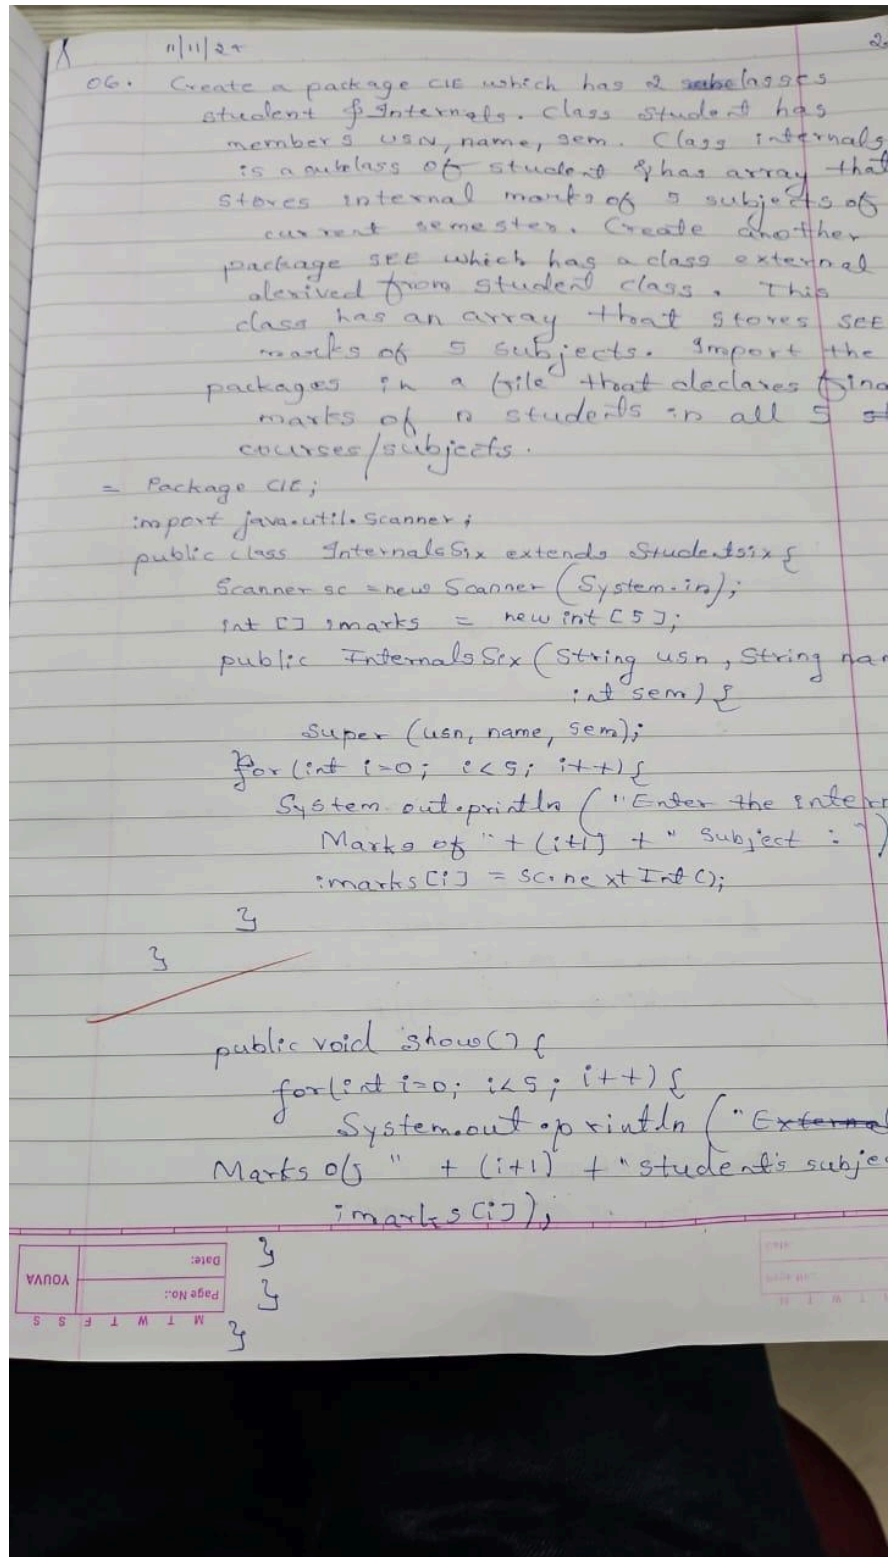 11/11/24
06. Create a package CIE which has 2 subclasses
student & Internals. Class Student has
members USN, name, sem. Class internals
is a subclass of student & has array that
stores internal marks of 5 subjects of
current semester. Create another
package SEE which has a class external
derived from student class. This
class has an array that stores SEE
marks of 5 subjects. Import the
packages in a file that declares fina
marks of n students in all 5
courses/subjects.
= Package CIE;
import java.util.Scanner;
public class InternalsSix extends Studentsix {
Scanner sc = new Scanner (System.in);
int [] imarks = new int [5];
public InternalsSix (String usn, String nam
int sem) {
Super (usn, name, sem);
for (int i=0; i<5; i++) {
System.out.println ("Enter the intern
Marks of " + (i+1) + " Subject : ")
imarks[i] = sc.nextInt();
}
}
public void show() {
for(int i=0; i<5; i++) {
System.out.println ("External
Marks of " + (i+1) + "student's subjec
imarks[i]);
}
}
}
YOUVA
Date:
Page No.:
M T W T F S S